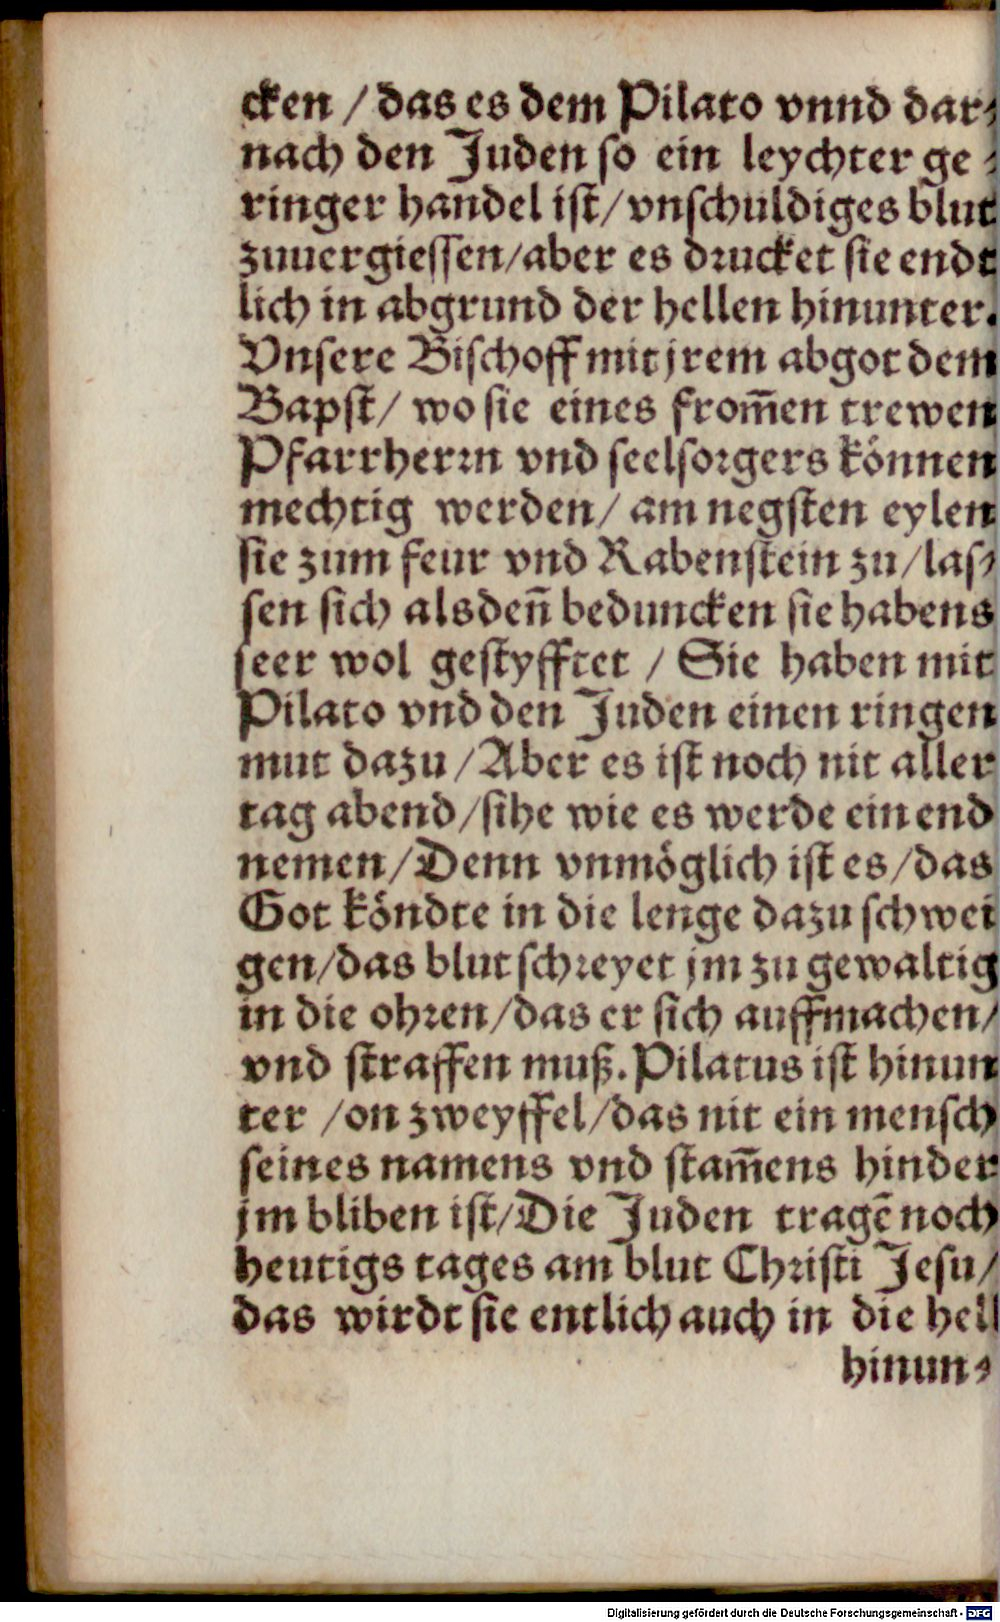 cken / das es dem Pilato vnnd dar⸗
nach den Juden so ein leychter ge⸗
ringer handel ist / vnschuldiges blut
zuuergiessen / aber es drucket sie endt
lich in abgrund der hellen hinunter.
Vnsere Bischoff mit jrem abgot dem
Bapst / wo sie eines from̃en trewen
Pfarrherrn vnd seelsorgers können
mechtig werden / am negsten eylen
sie zum feur vnd Rabenstein zu / las⸗
sen sich alsdeñ beduncken sie habens
seer wol gestyfftet / Sie haben mit
Pilato vnd den Juden einen ringen
mut dazu / Aber es ist noch nit aller
tag abend / sihe wie es werde ein end
nemen / Denn vnmöglich ist es / das
Got köndte in die lenge dazu schwei
gen / das blut schreyet jm zu gewaltig
in die ohren / das er sich auffmachen /
vnd straffen muß. Pilatus ist hinun
ter / on zweyffel / das nit ein mensch
seines namens vnd stam̃ens hinder
jm bliben ist / Die Juden tragẽ noch
heutigs tages am blut Christi Jesu /
das wirdt sie entlich auch in die hell
hinun⸗
Digitalisierung gefördert durch die Deutsche Forschungsgemeinschaft - DFG